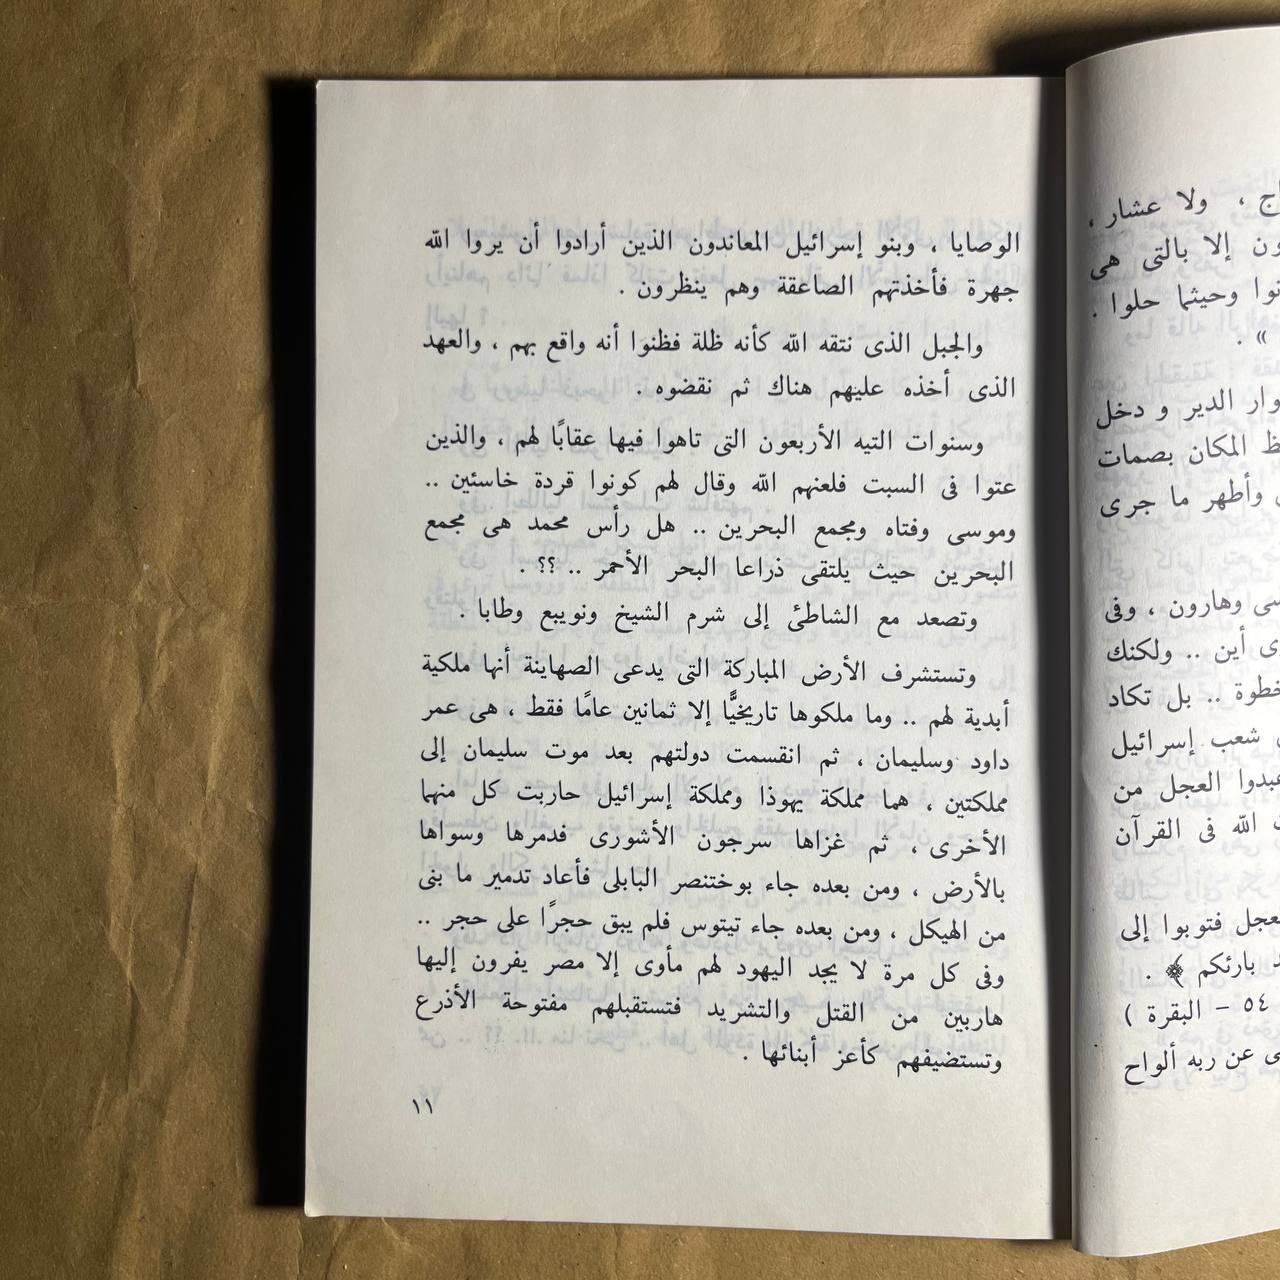 اج ، ولا عشار ،
ون إلا بالتى هى
نوا وحيثما حلوا .
» .
وار الدير و دخل
ظ المكان بصمات
وأطهر ما جرى
سى وهارون ، وفى
ى أين .. ولكنك
خطوة .. بل تكاد
شعب إسرائيل
عبدوا العجل من
الله فى القرآن
لعجل فتوبوا إلى
بارئكم ﴾ .
٥٤ – البقرة )
ى عن ربه ألواح
الوصايا ، وبنو إسرائيل المعاندون الذين أرادوا أن يروا الله
جهرة فأخذتهم الصاعقة وهم ينظرون .
والجبل الذى نتقه الله كأنه ظلة فظنوا أنه واقع بهم ، والعهد
الذى أخذه عليهم هناك ثم نقضوه .
وسنوات التيه الأربعون التى تاهوا فيها عقابًا لهم ، والذين
عتوا فى السبت فلعنهم الله وقال لهم كونوا قردة خاسئين ..
وموسى وفتاه ومجمع البحرين .. هل رأس محمد هى مجمع
البحرين حيث يلتقى ذراعا البحر الأحمر .. ؟؟ .
وتصعد مع الشاطئ إلى شرم الشيخ ونويبع وطابا .
وتستشرف الأرض المباركة التى يدعى الصهاينة أنها ملكية
أبدية لهم .. وما ملكوها تاريخيًّا إلا ثمانين عامًا فقط ، هى عمر
داود وسليمان ، ثم انقسمت دولتهم بعد موت سليمان إلى
مملكتين ، هما مملكة يهوذا ومملكة إسرائيل حاربت كل منهما
الأخرى ، ثم غزاها سرجون الأشورى فدمرها وسواها
بالأرض ، ومن بعده جاء بوختنصر البابلى فأعاد تدمير ما بنى
من الهيكل ، ومن بعده جاء تيتوس فلم يبق حجرًا على حجر ..
وفى كل مرة لا يجد اليهود لهم مأوى إلا مصر يفرون إليها
هاربين من القتل والتشريد فتستقبلهم مفتوحة الأذرع
وتستضيفهم كأعز أبنائها .
١١